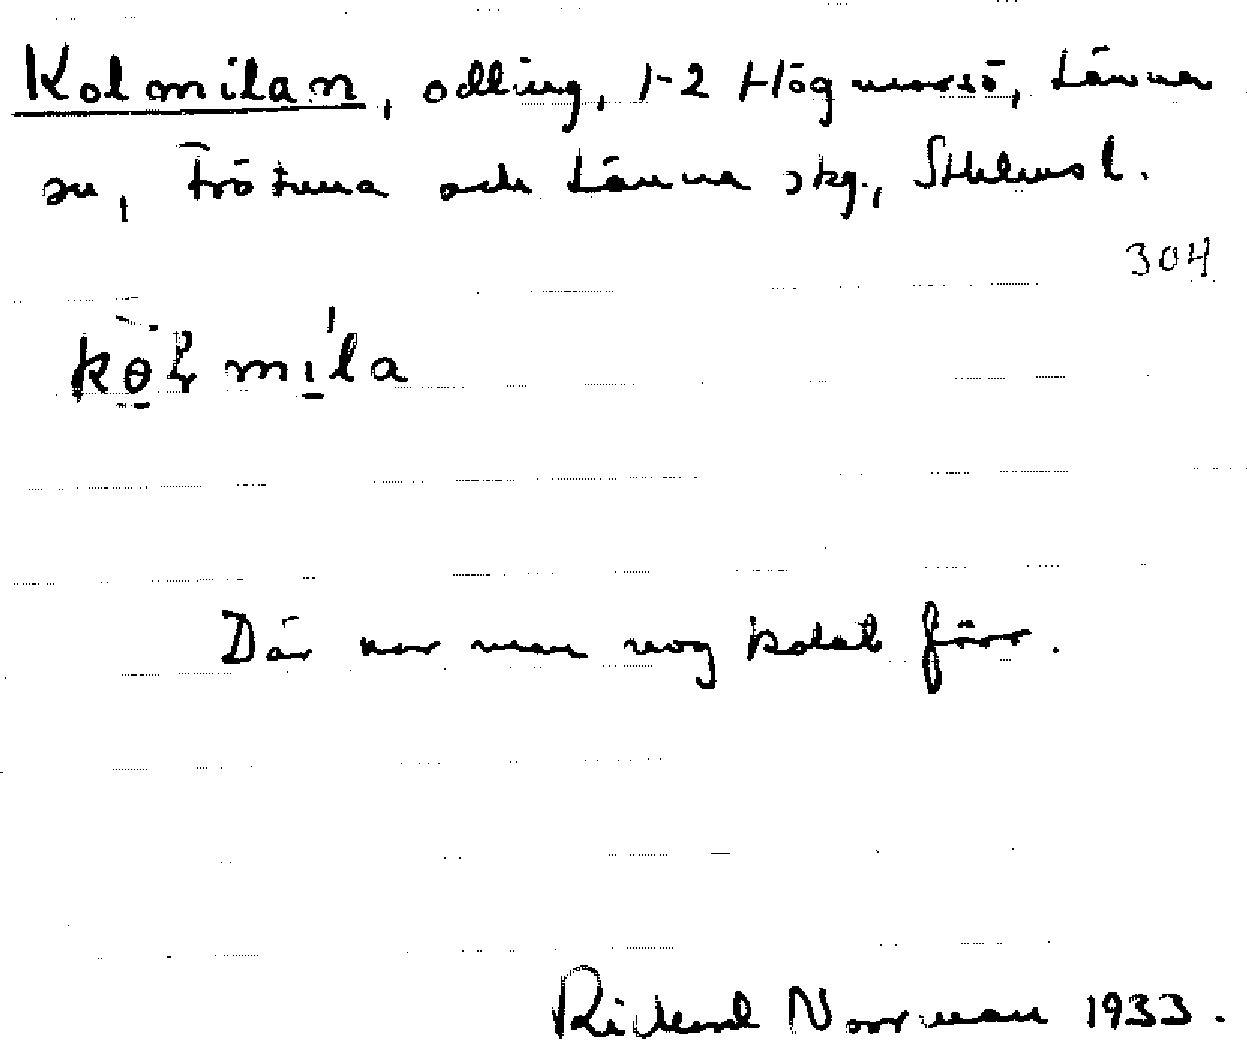 Kolmilan, odling, 1-2 Högmarsö, Länna
sn, Frötuna och Länna skg., Sthlmsl.
304
kò̱ƚmı̱́la
Där har man nog kolat förr.
Rickard Norrman 1933.